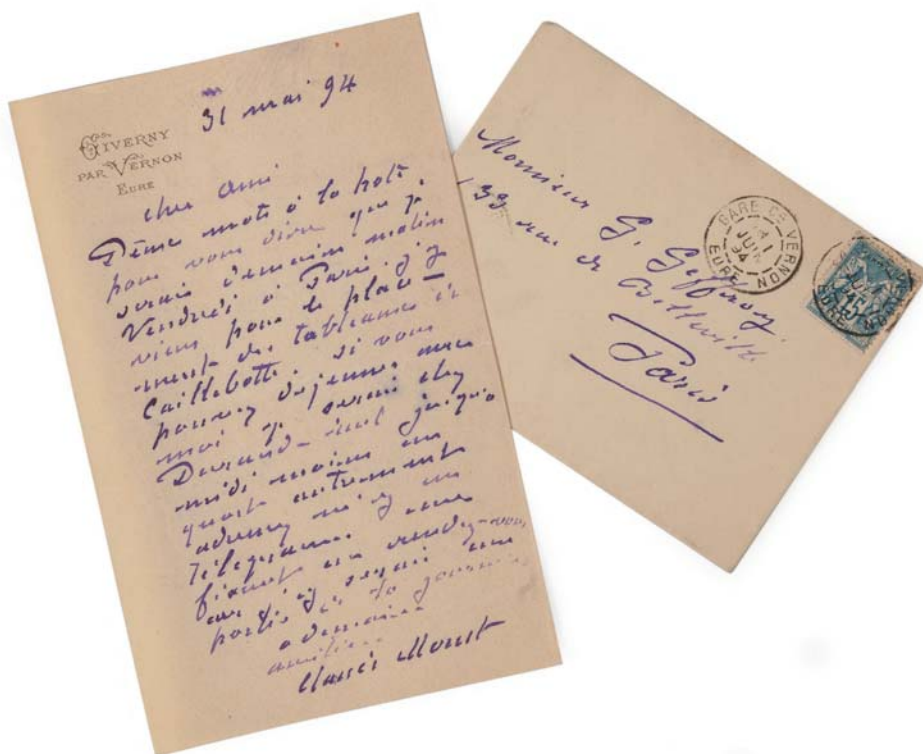 31 mai 94
GIVERNY
PAR VERNON
EURE
cher ami
Deux mots à la hâte,
pour vous dire que je
serai demain matin
Vendredi à Paris. j'y
viens pour le place-
ment des tableaux de
Caillebotte. si vous
pouvez dejeuner avec
moi je serai chez
Durand-Ruel jusqu'à
midi moins un
quart autrement
adressez moi un
télégramme me
fixant un rendez-vous
car j'y serai une
partie de la journée
a demain
amitiés
Claude Monet
Monsieur G. Geffroy
133 rue
de Belleville
Paris
GARE DE VERNON
EURE
JUIN
94